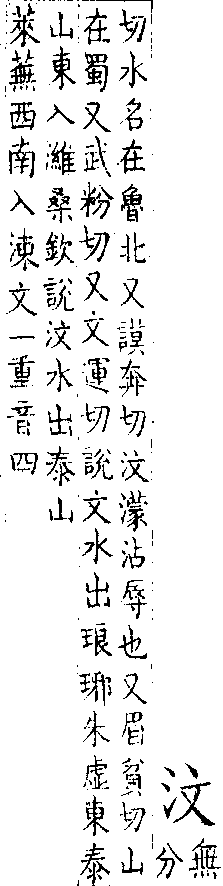 汶無分
切水名在魯北又謨奔切汶濛沾辱也又眉貧切山
在蜀又武粉切又文運切說文水出琅琊朱虛東泰
山東入濰桑欽說汶水出泰山
萊蕪西南入涑文一重音四